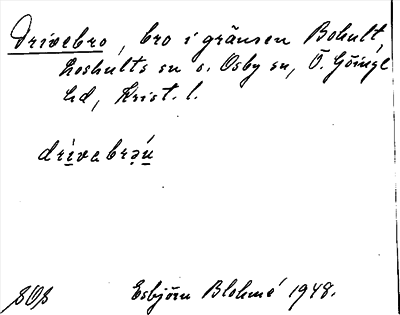 Drivebro, bro i gränsen Bohult,
Loshults sn o. Osby sn, Ö. Göinge
hd, Krist. l.
drivebrəú
Esbjörn Blohmé 1948.